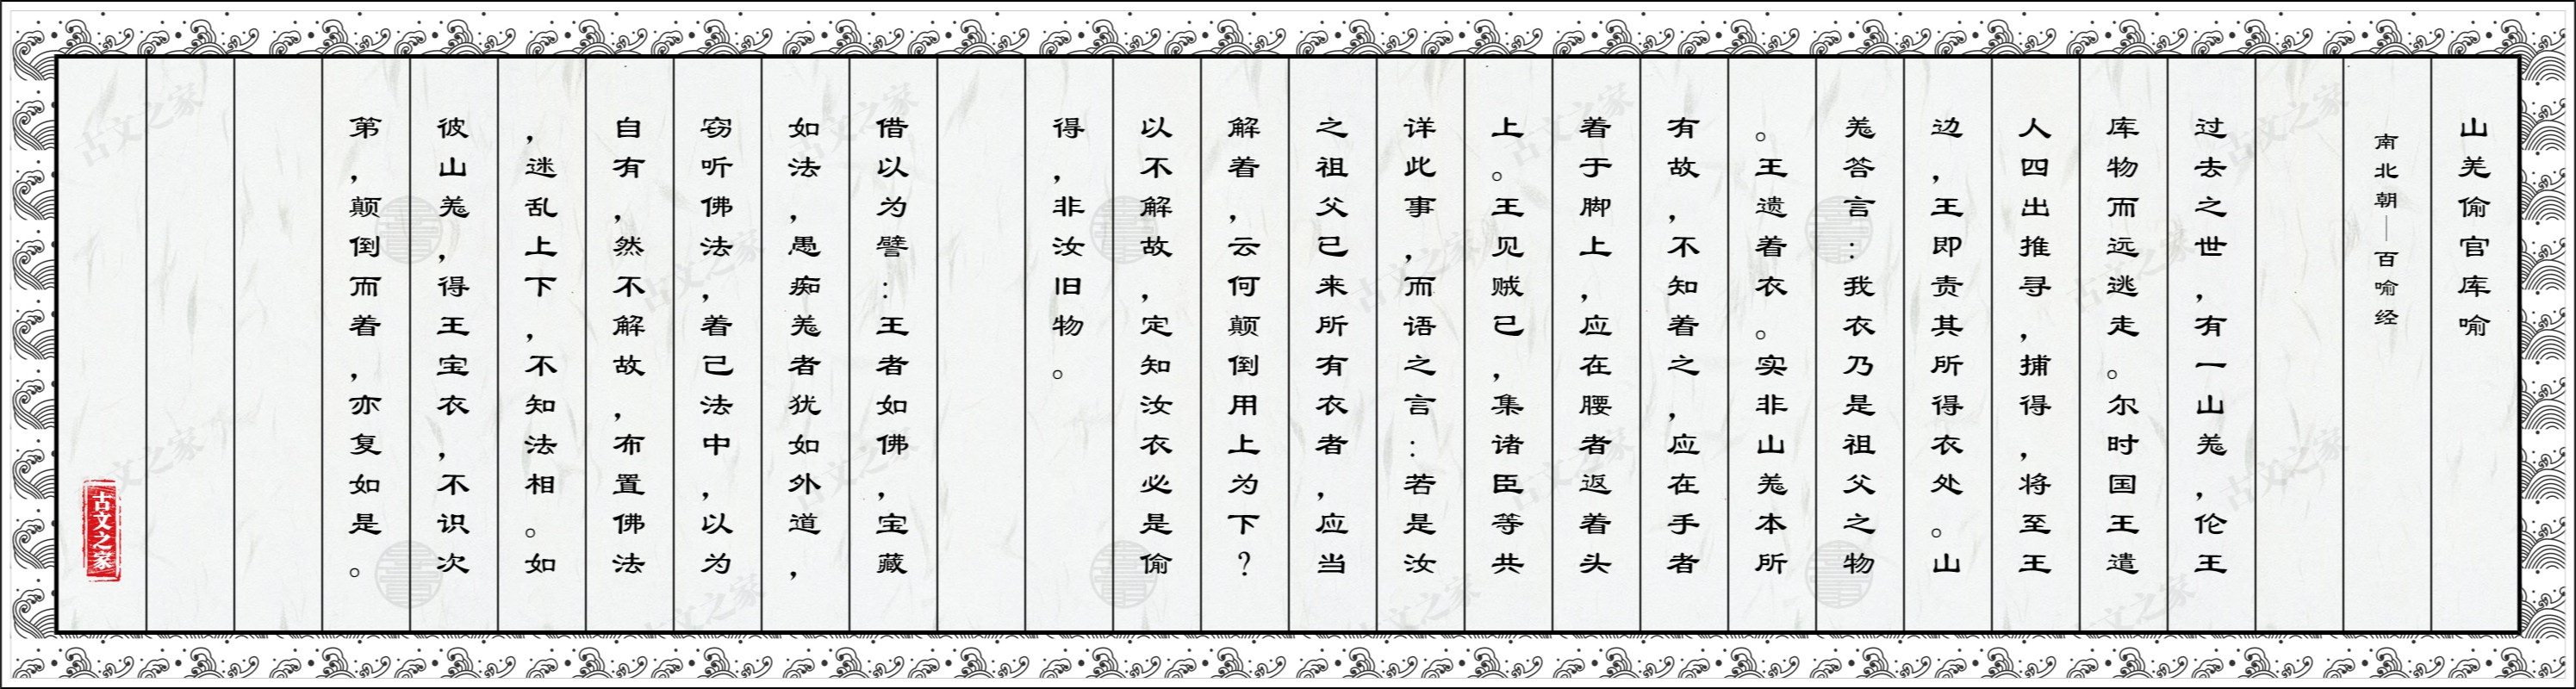 山羌偷官库喻
南北朝—百喻经
过去之世，有一山羌，伦王
库物而远逃走。尔时国王遣
人四出推寻，捕得，将至王
边，王即责其所得衣处。山
羌答言：我衣乃是祖父之物
。王遗着衣。实非山羌本所
有故，不知着之，应在手者
着于脚上，应在腰者返着头
上。王见贼已，集诸臣等共
详此事，而语之言：若是汝
之祖父已来所有衣者，应当
解着，云何颠倒用上为下？
以不解故，定知汝衣必是偷
得，非汝旧物。
借以为譬：王者如佛，宝藏
如法，愚痴羌者犹如外道，
窃听佛法，着己法中，以为
自有，然不解故，布置佛法
，迷乱上下，不知法相。如
彼山羌，得王宝衣，不识次
第，颠倒而着，亦复如是。
古文之家